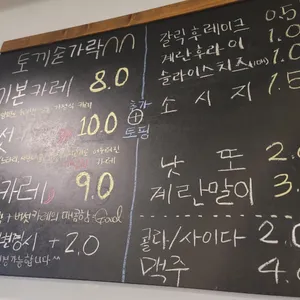 토끼숟가락^^
기본카레 8.0
10.0
카레 9.0
Good
변경시 +2.0
추가
⊕
토핑
갈릭후레이크 0.5
계란후라이 1.0
슬라이스치즈 1.0
소시지 1.5
낫또 2.0
계란말이 3.
콜라/사이다 2.0
맥주 4.0